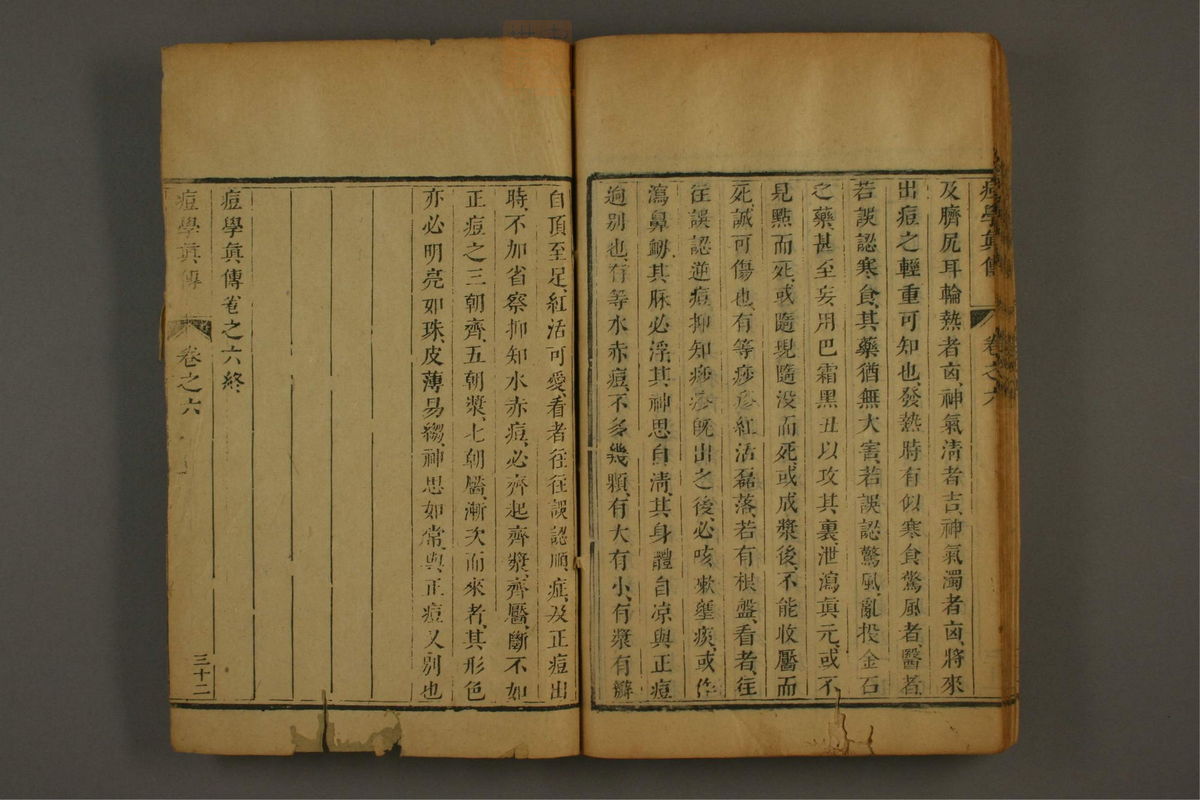 痘學眞傳 卷之六
及臍尻耳輪熱者凶、神氣清者吉、神氣濁者凶、將來
出痘之輕重可知也、發熱時有似寒食驚風者、醫者
若誤認寒食、其藥猶無大害、若誤認驚風、亂投金石
之藥、甚至妄用巴霜黑丑以攻其裏、泄瀉眞元、或不
見點而死、或隨現隨没而死、或成漿後、不能收靨而
死、誠可傷也、有等痧疹、紅活磊落、若有根盤、看者、往
往誤認逆痘、抑知痧疹旣出之後、必咳嗽壅痰、或作
瀉鼻衂、其脉必浮、其神思自清、其身體自凉、與正痘
逈别也、有等水赤痘、不多幾顆、有大有小、有漿有癬
自頂至足、紅活可愛、看者往往誤認順症、及正痘出
時、不加省察、抑知水赤痘、必齊起齊漿、齊靨、斷不如
正痘之三朝齊、五朝漿、七朝靨、漸次而來者、其形色
亦必明亮如珠、皮薄易縐、神思如常、與正痘又别也
痘學眞傳卷之六終
痘學眞傳 卷之六 三十二